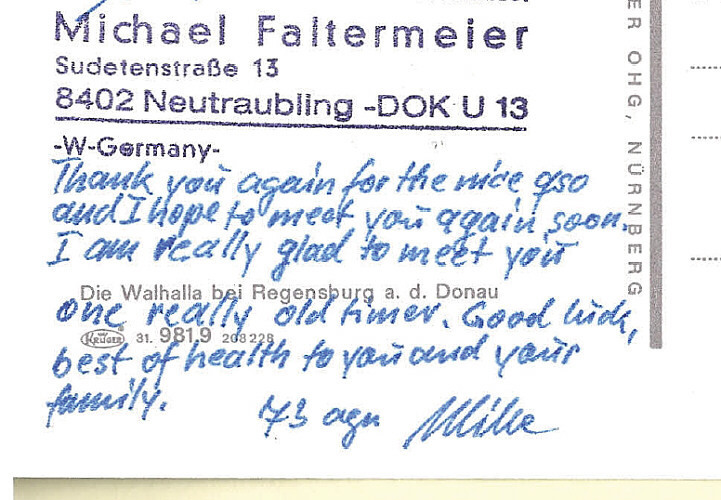 Michael Faltermeier
Sudetenstraße 13
8402 Neutraubling -DOK U 13
-W-Germany-
Thank you again for the nice qso
and I hope to meet you again soon.
I am really glad to meet you
Die Walhalla bei Regensburg a. d. Donau
one really old timer. Good luck,
KRÜGER 31. 981.9 208228
best of health to you and your
family. 73 agn Mike
ER OHG, NÜRNBERG